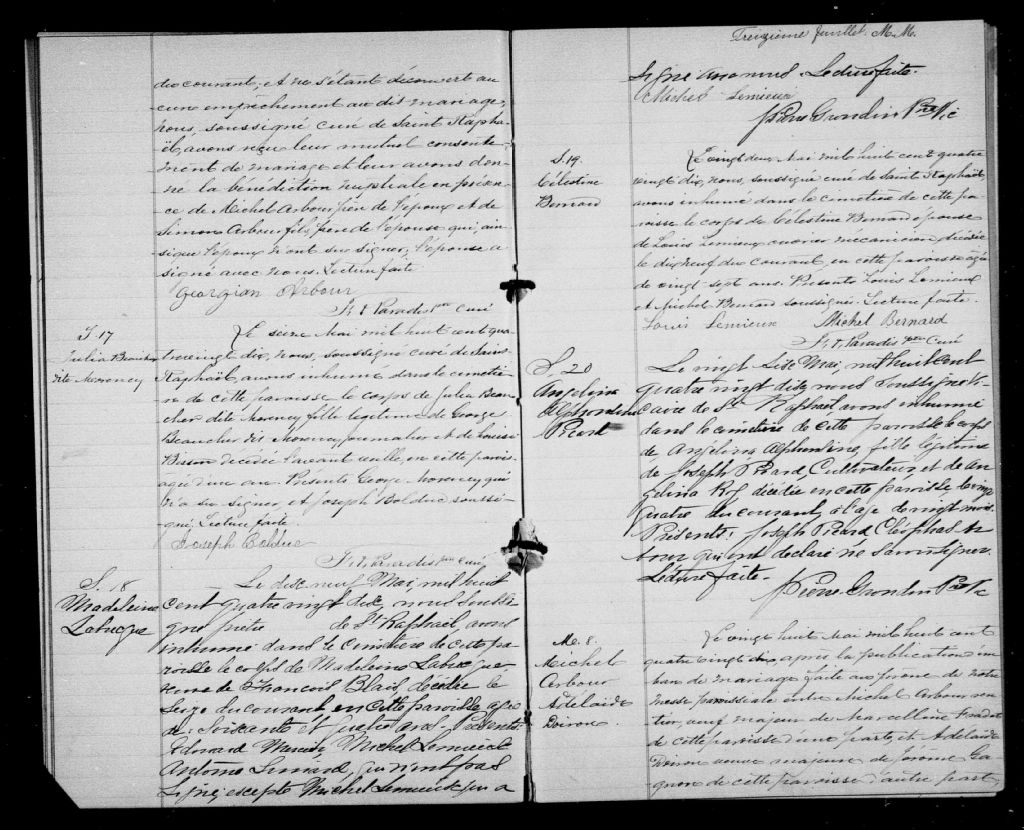 du courant, et ne s'étant découvert au
cun empêchement au dit mariage,
nous, soussigné curé de Saint Rapha-
ël, avons reçu leur mutuel consente-
ment de mariage et leur avons don-
né la bénédiction nuptiale en présen-
ce de Michel Arbour père de l'époux et de
Simon Arbour fils, frère de l'épouse qui, ain-
si que l'époux n'ont su signer, l'épouse a
signé avec nous. Lecture faite
Georgian Arbour
Paradis ptre Curé
S. 17
Julia Beaucher
dite Morency
Le seize Mai mil huit cent qua-
tre vingt dix, nous, soussigné curé de Saint
Raphaël, avons inhumé dans le cimetiè-
re de cette paroisse le corps de Julia Beau-
cher dite Morency fille légitime de George
Beaucher dit Morency journalier et de Louise
décédée l'avant veille, en cette parois.
agée d'un an. Présents George Morency qui
n'a su signer, et Joseph Bolduc soussi-
gné, Lecture faite.
Joseph Bolduc
Paradis ptre Curé
S. 18
Madeleine
Labrecque
Le dix neuf Mai, mil huit
cent quatre vingt dix, nous soussi
gné prêtre de St Raphaël, avons
inhumé dans le cimetière de cette pa
roisse le corps de Madeleine Labrecque
de François Blais, décédée le
seize du courant en cette paroisse agée
de soixante et quatre ans. Présents
Edouard Michel Lemieux
Antoine qui n'ont pas
signé, excepté Michel Lemieux qui a
Treizième feuillet. M.M.
signé avec nous. Lecture faite.
Michel Lemieux
Pierre Grondin Ptre Vic
S. 19.
Célestine
Bernard
Le vingt deux Mai mil huit cent quatre
vingt dix, nous, soussigné curé de Saint Raphaël,
avons inhumé dans le cimetière de cette pa-
roisse le corps de Célestine Bernard épouse
de Louis Lemieux ouvrier mécanicien, décédée
le dix neuf du courant, en cette paroisse agée
de vingt sept ans. Présents Louis Lemieux
et Michel Bernard soussignés. Lecture faite.
Louis Lemieux Michel Bernard
Paradis ptre Curé
S. 20
Angelina
Alphonsine
Picard
Le vingt six Mai, mil huit cent
quatre vingt dix, nous soussigné Vi-
caire de St. Raphaël avons inhumé
dans le cimetière de cette paroisse le corps
de Angelina Alphonsine, fille légitime
de Joseph Picard, Cultivateur, et de An
gelina Roy décédée en cette paroisse, le vingt
quatre du courant, à l'age de vingt mois.
Présents: Joseph Picard, Cléophas
qui ont déclaré ne savoir signer.
Lecture faite.
Pierre Grondin Ptre Vic
M. 8.
Michel
Arbour
Adélaide
Doiron.
Le vingt huit Mai mil huit cent
quatre vingt dix après la publication d'un
ban de mariage faite au prône de notre
messe paroissiale entre Michel Arbour ren-
tier, veuf majeur de Marcelline
de cette paroisse d'une part, et Adélaide
Doiron veuve majeure de Jérôme Ga-
gnon de cette paroisse d'autre part,